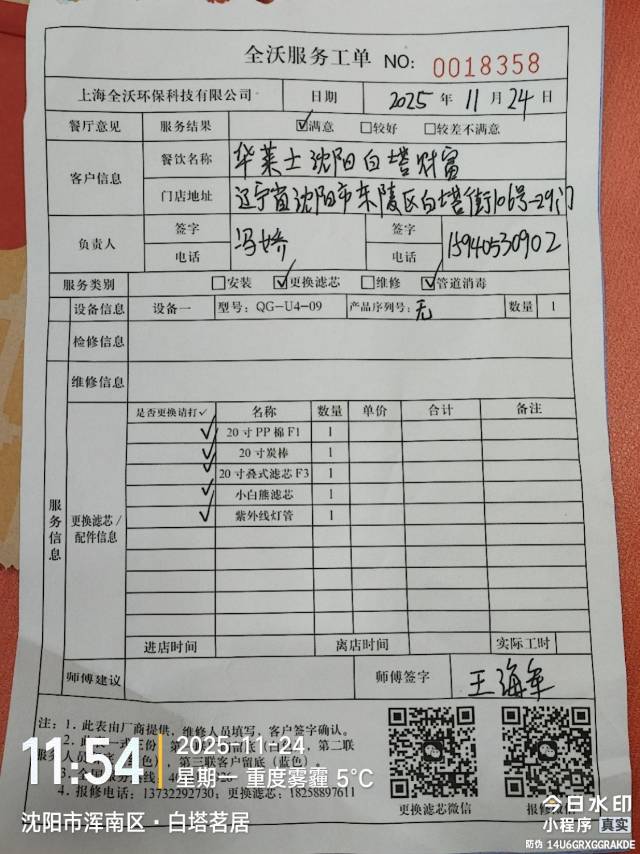 全沃服务工单 NO: 0018358
上海全沃环保科技有限公司 日期 2025 年 11 月 24 日
餐厅意见 服务结果 ☑满意 □较好 □较差不满意
客户信息 餐饮名称 华莱士沈阳白塔财富
门店地址 辽宁省沈阳市东陵区白塔街106号-29门
负责人 签字 冯娇 签字
电话 电话 15940530902
服务类别 □安装 ☑更换滤芯 □维修 ☑管道消毒
设备信息 设备一 型号: QG-U4-09 产品序列号: 无 数量 1
检修信息
维修信息
服务信息
更换滤芯/配件信息
是否更换请打✓ 名称 数量 单价 合计 备注
✓ 20寸PP棉F1 1
✓ 20寸炭棒 1
✓ 20寸叠式滤芯F3 1
✓ 小白熊滤芯 1
✓ 紫外线灯管 1
进店时间 离店时间 实际工时
师傅建议 师傅签字 王海军
注: 1. 此表由厂商提供, 维修人员填写, 客户签字确认。
2. 此 一式三份, 第 第二联
服务人员 色), 第三联客户留底 (蓝色)。
3.
4. 报修电话: 13732292730; 更换滤芯: 18258897611
更换滤芯微信 报修微信
11:54 2025-11-24
星期一 重度雾霾 5℃
沈阳市浑南区·白塔茗居
今日水印
小程序 真实
防伪 14U6GRXGGRAKDE